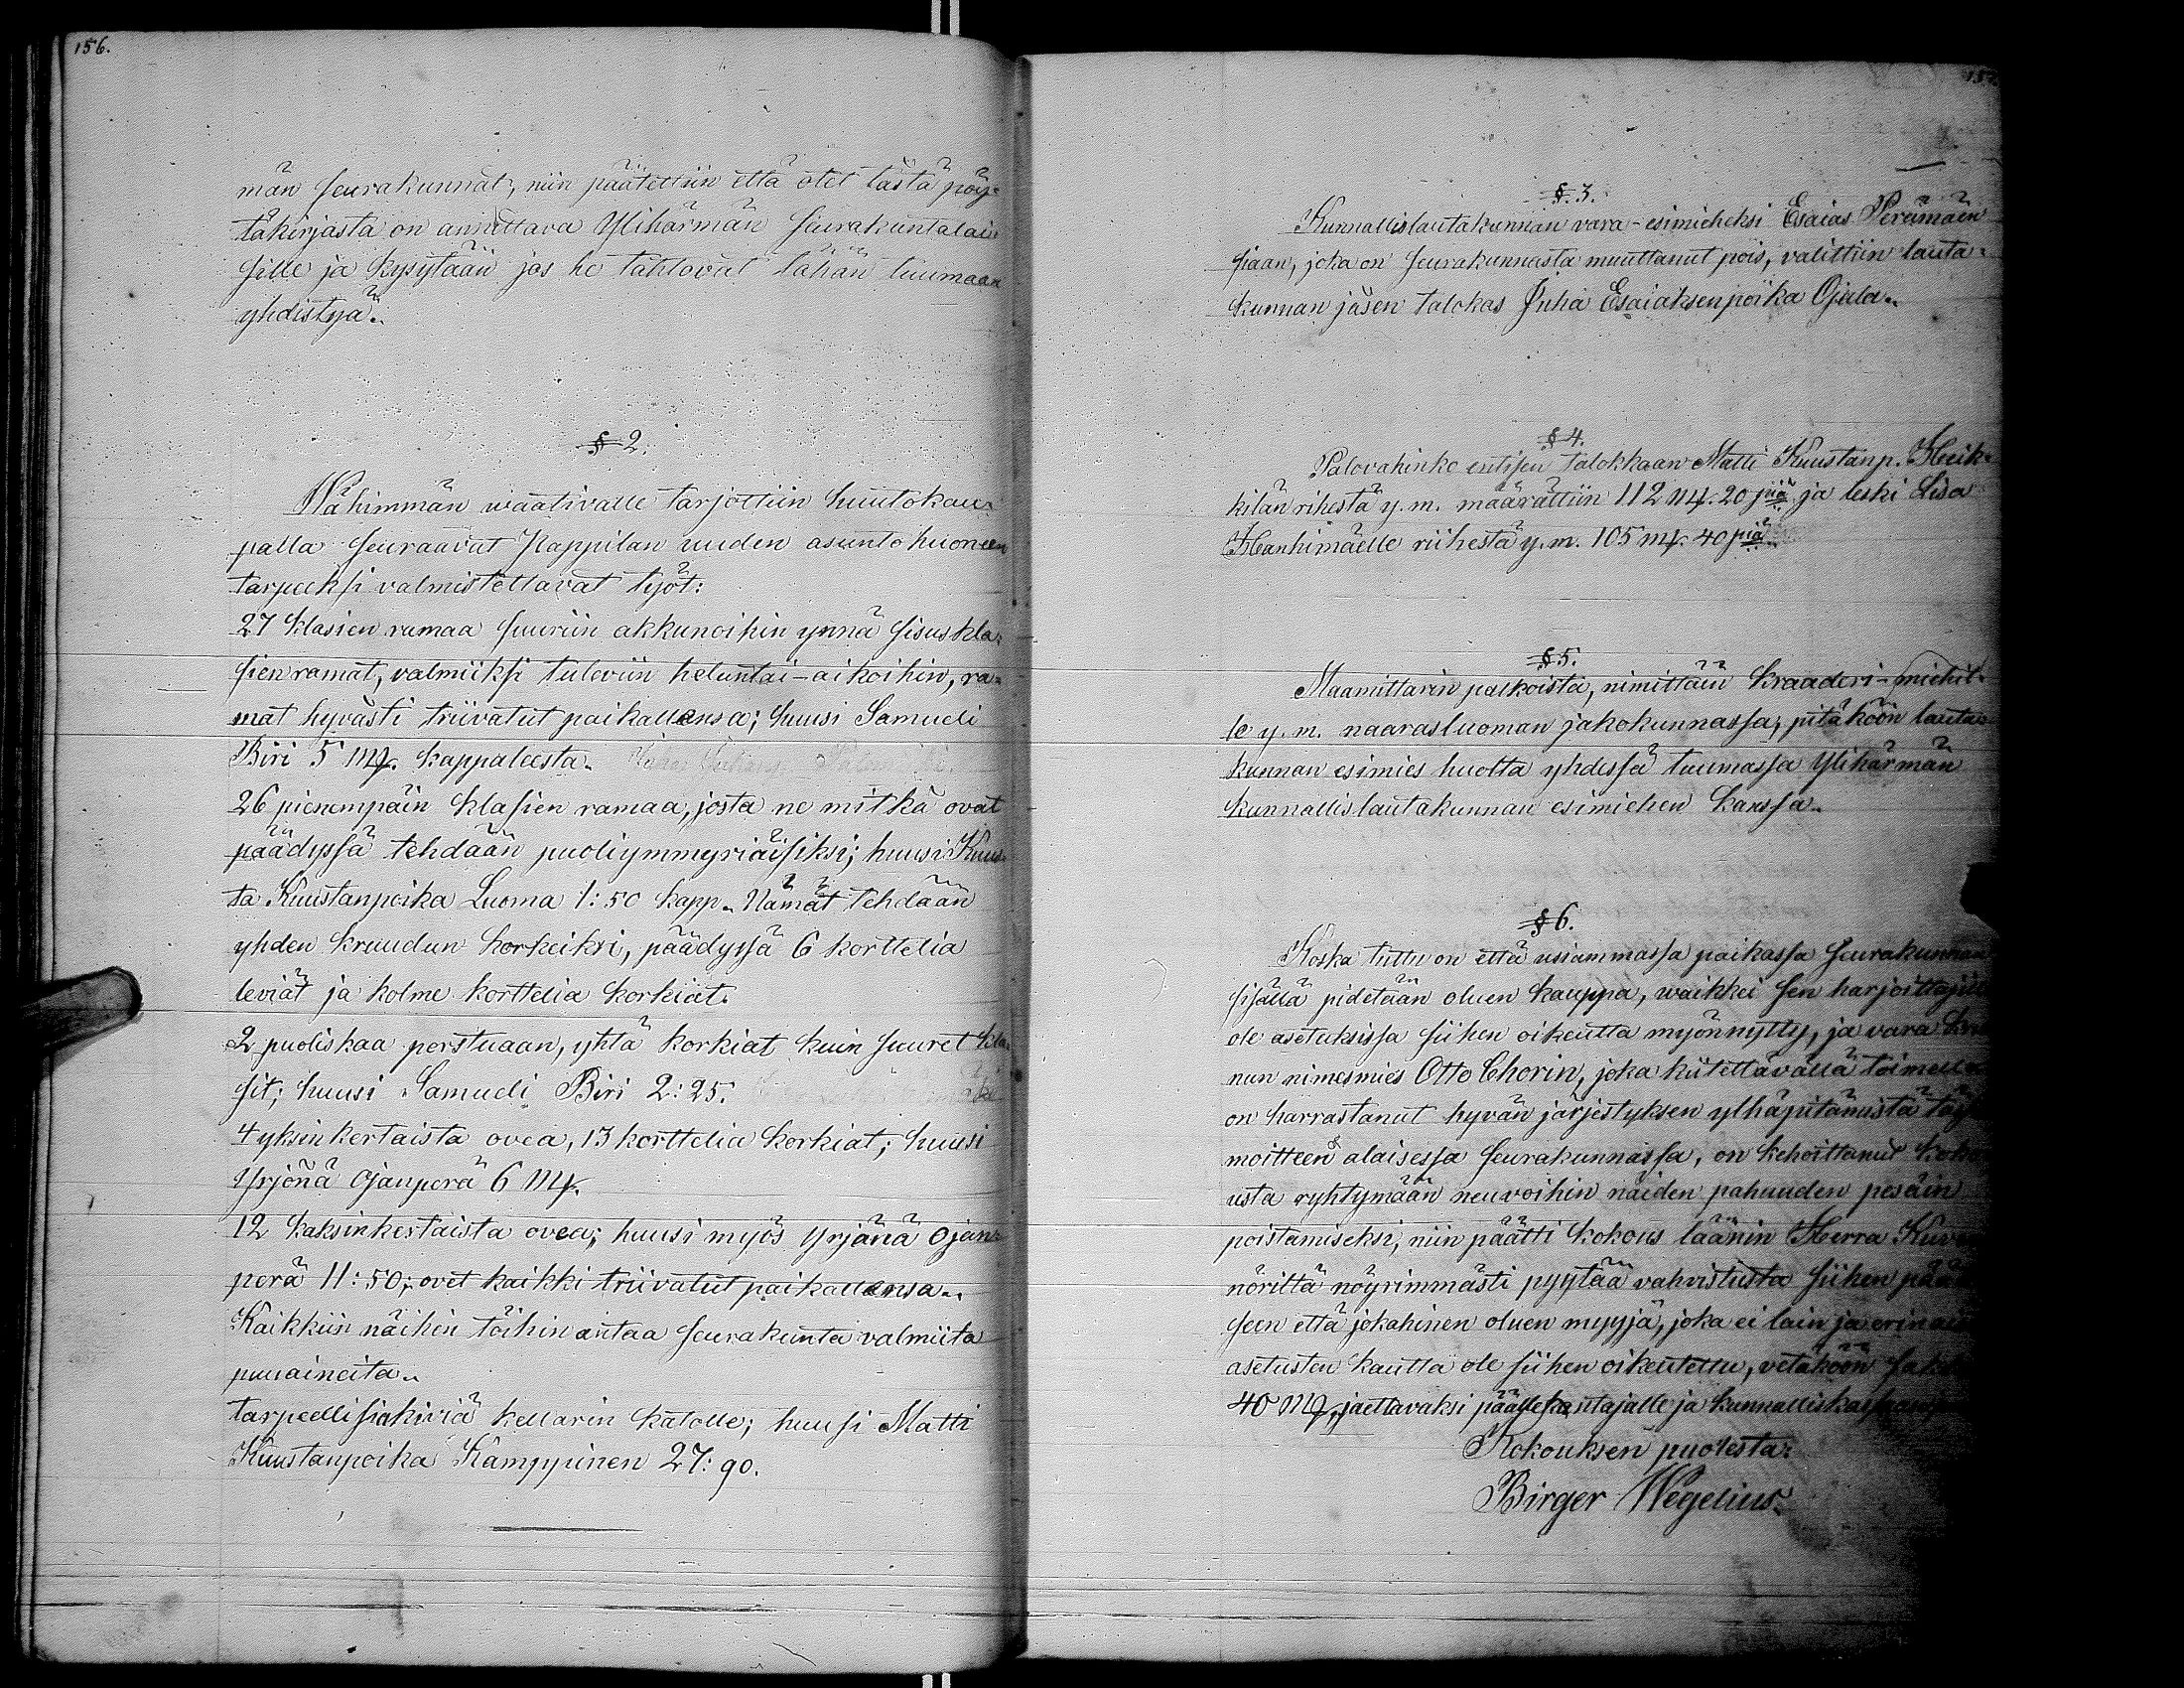 156.
män seurakunnat, niin päätettiin että otet tästä pöy-
täkirjasta on annettava Ylihärmän seurakuntalai-
sille ja kysytään jos he tahtovat tähän tuumaan
yhdistyä.
§ 2.
Wähimmän waativalle tarjottiin huutokau-
palla seuraavat Pappilan uuden asuntohuoneen
tarpeeksi valmistettavat työt:
27 klasien ramaa suuriin akkunoihin ynnä sisuskla-
sien ramat, valmiiksi tuleviin heluntai-aikoihin, ra-
mat hyvästi triivatut paikallensa; huusi Samueli
Biri 5 mk. kappaleesta.
26 pienempäin klasien ramaa, josta ne mitkä ovat
päädyssä tehdään puoliymmyriäisiksi; huusi Kuus-
ta Kuustanpoika Luoma 1:50 kapp. Nämät tehdään
yhden kruudun korkeiksi, päädyssä 6 korttelia
leviät ja kolme korttelia korkiat.
2 puoliskaa porstuaan, yhtä korkiat kuin suuret kla-
sit; huusi Samueli Biri 2:25.
4 yksinkertaista ovea, 13 korttelia korkiat; huusi
Yrjänä Ojanperä 6 mk.
12 kaksinkertaista ovea; huusi myös Yrjänä Ojan-
perä 11:50; ovet kaikki triivatut paikallensa.
Kaikkiin näihin töihin antaa seurakunta valmiita
puuaineita.
tarpeellisia kiviä kellarin katolle; huusi Matti
Kuustanpoika Kamppinen 27:90.
157.
§. 3.
Kunnallislautakunnan vara-esimieheksi Esaias Perämäen
siaan, joka on seurakunnasta muuttanut pois, valittiin lauta-
kunnan jäsen talokas Juha Esaiaksenpoika Ojala.
§ 4.
Palovahinko entisen talokkaan Matti Kuustanp. Heik-
kilän rihestä y.m. määrättiin 112 mk. 20 piä ja leski Lisa
Hanhimäelle riihestä y.m. 105 mk. 40 piä.
§ 5.
Maamittarin palkoista, nimittäin kraaderi-miehil-
le y.m. naarasluoman jakokunnassa, pitäköön lauta-
kunnan esimies huolta yhdessä tuumassa Ylihärmän
kunnallislautakunnan esimiehen kanssa.
§ 6.
Koska tuttu on että usiammassa paikassa seurakunnan
sisällä pidetään oluen kauppa, waikkei sen harjoittajilla
ole asetuksissa siihen oikeutta myönnytty, ja vara
nun nimesmies Otto Chorin, joka kiitettävällä toimella
on harrastanut hyvän järjestyksen ylhäpitämistä
moitteen alaisessa seurakunnassa, on kehoittanut
usta ryhtymään neuvoihin näiden pahuuden pesäin
poistamiseksi, niin päätti kokous läänin Herra Kuver-
nöriltä nöyrimmästi pyytää vahvistusta siihen
seen että jokahinen oluen myyjä, joka ei lain ja
asetusten kautta ole siihen oikeutettu, vetäköön
40 mk, jaettavaksi päällekantajalle ja kunnalliskassaan
Kokouksen puolesta:
Birger Wegelius.